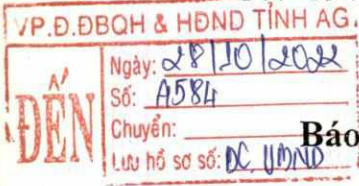 VP.Đ.ĐBQH & HĐND TỈNH AG
ĐẾN
Ngày: 28/10/2022
Số: A584
Chuyển:
Báo
Lưu hồ sơ số: